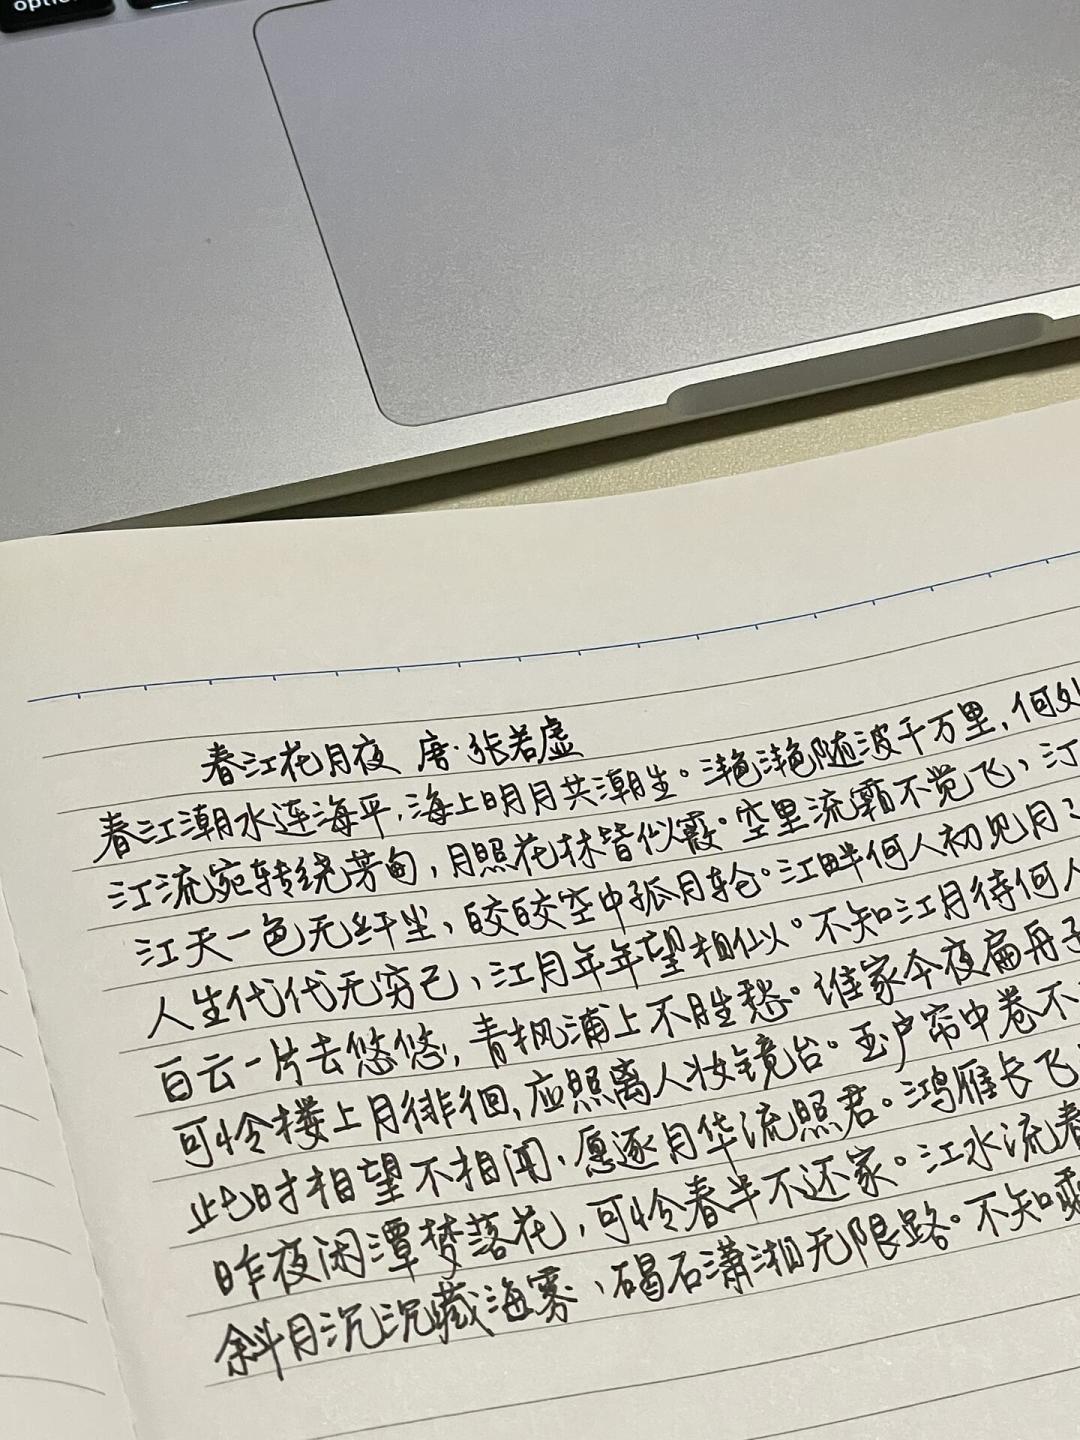 option
春江花月夜 唐·张若虚
春江潮水连海平,海上明月共潮生。滟滟随波千万里,何处
江流宛转绕芳甸,月照花林皆似霰。空里流霜不觉飞,汀
江天一色无纤尘,皎皎空中孤月轮。江畔何人初见月?
人生代代无穷已,江月年年望相似。不知江月待何人
白云一片去悠悠,青枫浦上不胜愁。谁家今夜扁舟子
可怜楼上月徘徊,应照离人妆镜台。玉户帘中卷不
此时相望不相闻,愿逐月华流照君。鸿雁长飞
昨夜闲潭梦落花,可怜春半不还家。江水流春
斜月沉沉藏海雾,碣石潇湘无限路。不知乘